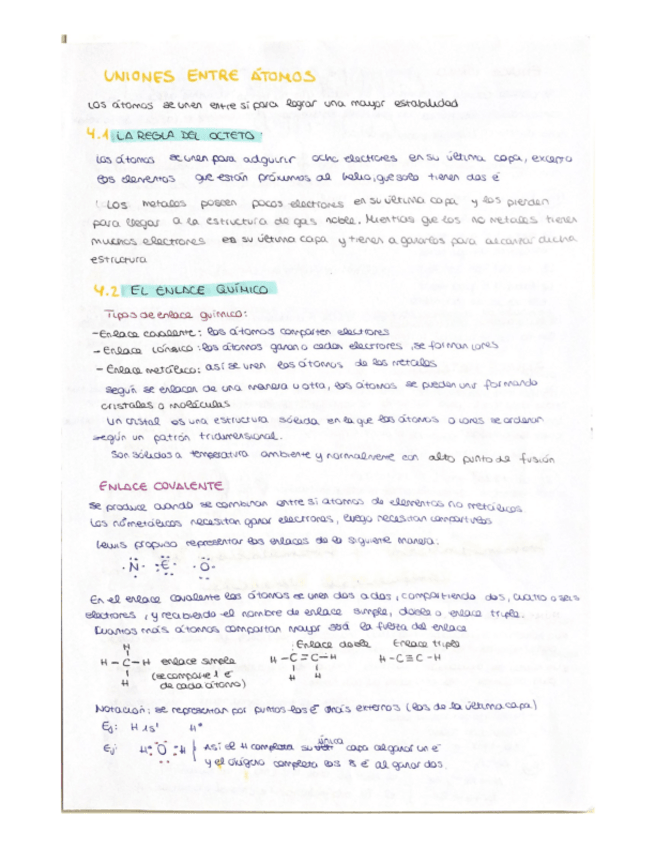 UNIONES ENTRE ÁTOMOS
Los átomos se unen entre sí para lograr una mayor estabilidad
4.1 LA REGLA DEL OCTETO
Los átomos se unen para adquirir ocho electrones en su última capa, excepto
los elementos que están próximos al helio, que solo tienen dos é
Los metales poseen pocos electrones en su última capa y los pierden
para llegar a la estructura de gas noble. Mientras que los no metales tienen
muchos electrones en su última capa y tienen a ganarlos para alcanzar dicha
estructura
4.2 EL ENLACE QUÍMICO
Tipos de enlace químico:
- Enlace covalente: los átomos comparten electrones
- Enlace iónico: los átomos ganan o ceden electrones, se forman iones
- Enlace metálico: así se unen los átomos de los metales
Según se enlacen de una manera u otra, los átomos se pueden unir formando
cristales o moléculas
Un cristal es una estructura sólida en la que los átomos o iones se ordenan
según un patrón tridimensional.
Son sólidas a temperatura ambiente y normalmente con alto punto de fusión
ENLACE COVALENTE
Se produce cuando se combinan entre sí átomos de elementos no metálicos
Los no metálicos necesitan ganar electrones, luego necesitan compartirlos
Lewis propuso representar los enlaces de la siguiente manera:
N F O
En el enlace covalente los átomos se unen dos a dos, compartiendo dos, cuatro o seis
electrones, y recibiendo el nombre de enlace simple, doble o enlace triple.
Cuantos más átomos compartan mayor será la fuerza del enlace
H Enlace doble Enlace triple
H - C - H enlace simple H - C = C - H H - C ≡ C - H
H (se comparte 1 é H H
de cada átomo)
Notación: se representan por puntos los é más externos (los de la última capa)
Ej: H 1s¹ H•
Ej: H : O : H Así el H completa su única capa al ganar un é
y el oxígeno completa los 8 é al ganar dos.